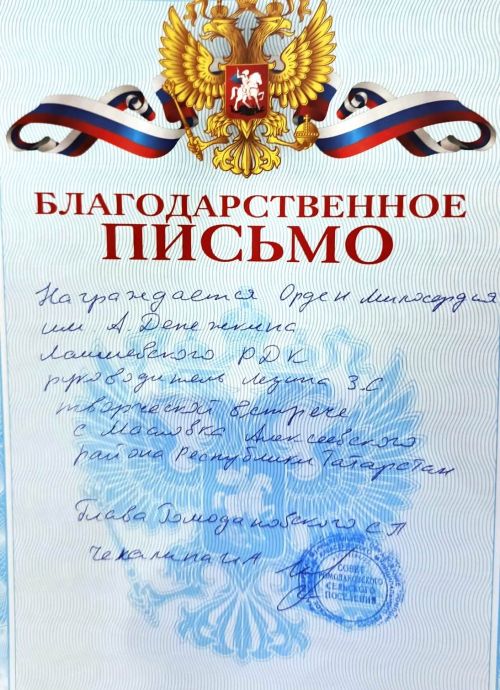 БЛАГОДАРСТВЕННОЕ
ПИСЬМО
Награждается Орден Милосердия
им. А. Денежкина
Лаишевского РДК
руководитель Лезина З.С
творческой встрече
с Масловка Алексеевского
района Республики Татарстан
Глава Гомодановского с П
Чекалина И А
СОВЕТ
СЕЛЬСКОГО
ПОСЕЛЕНИЯ